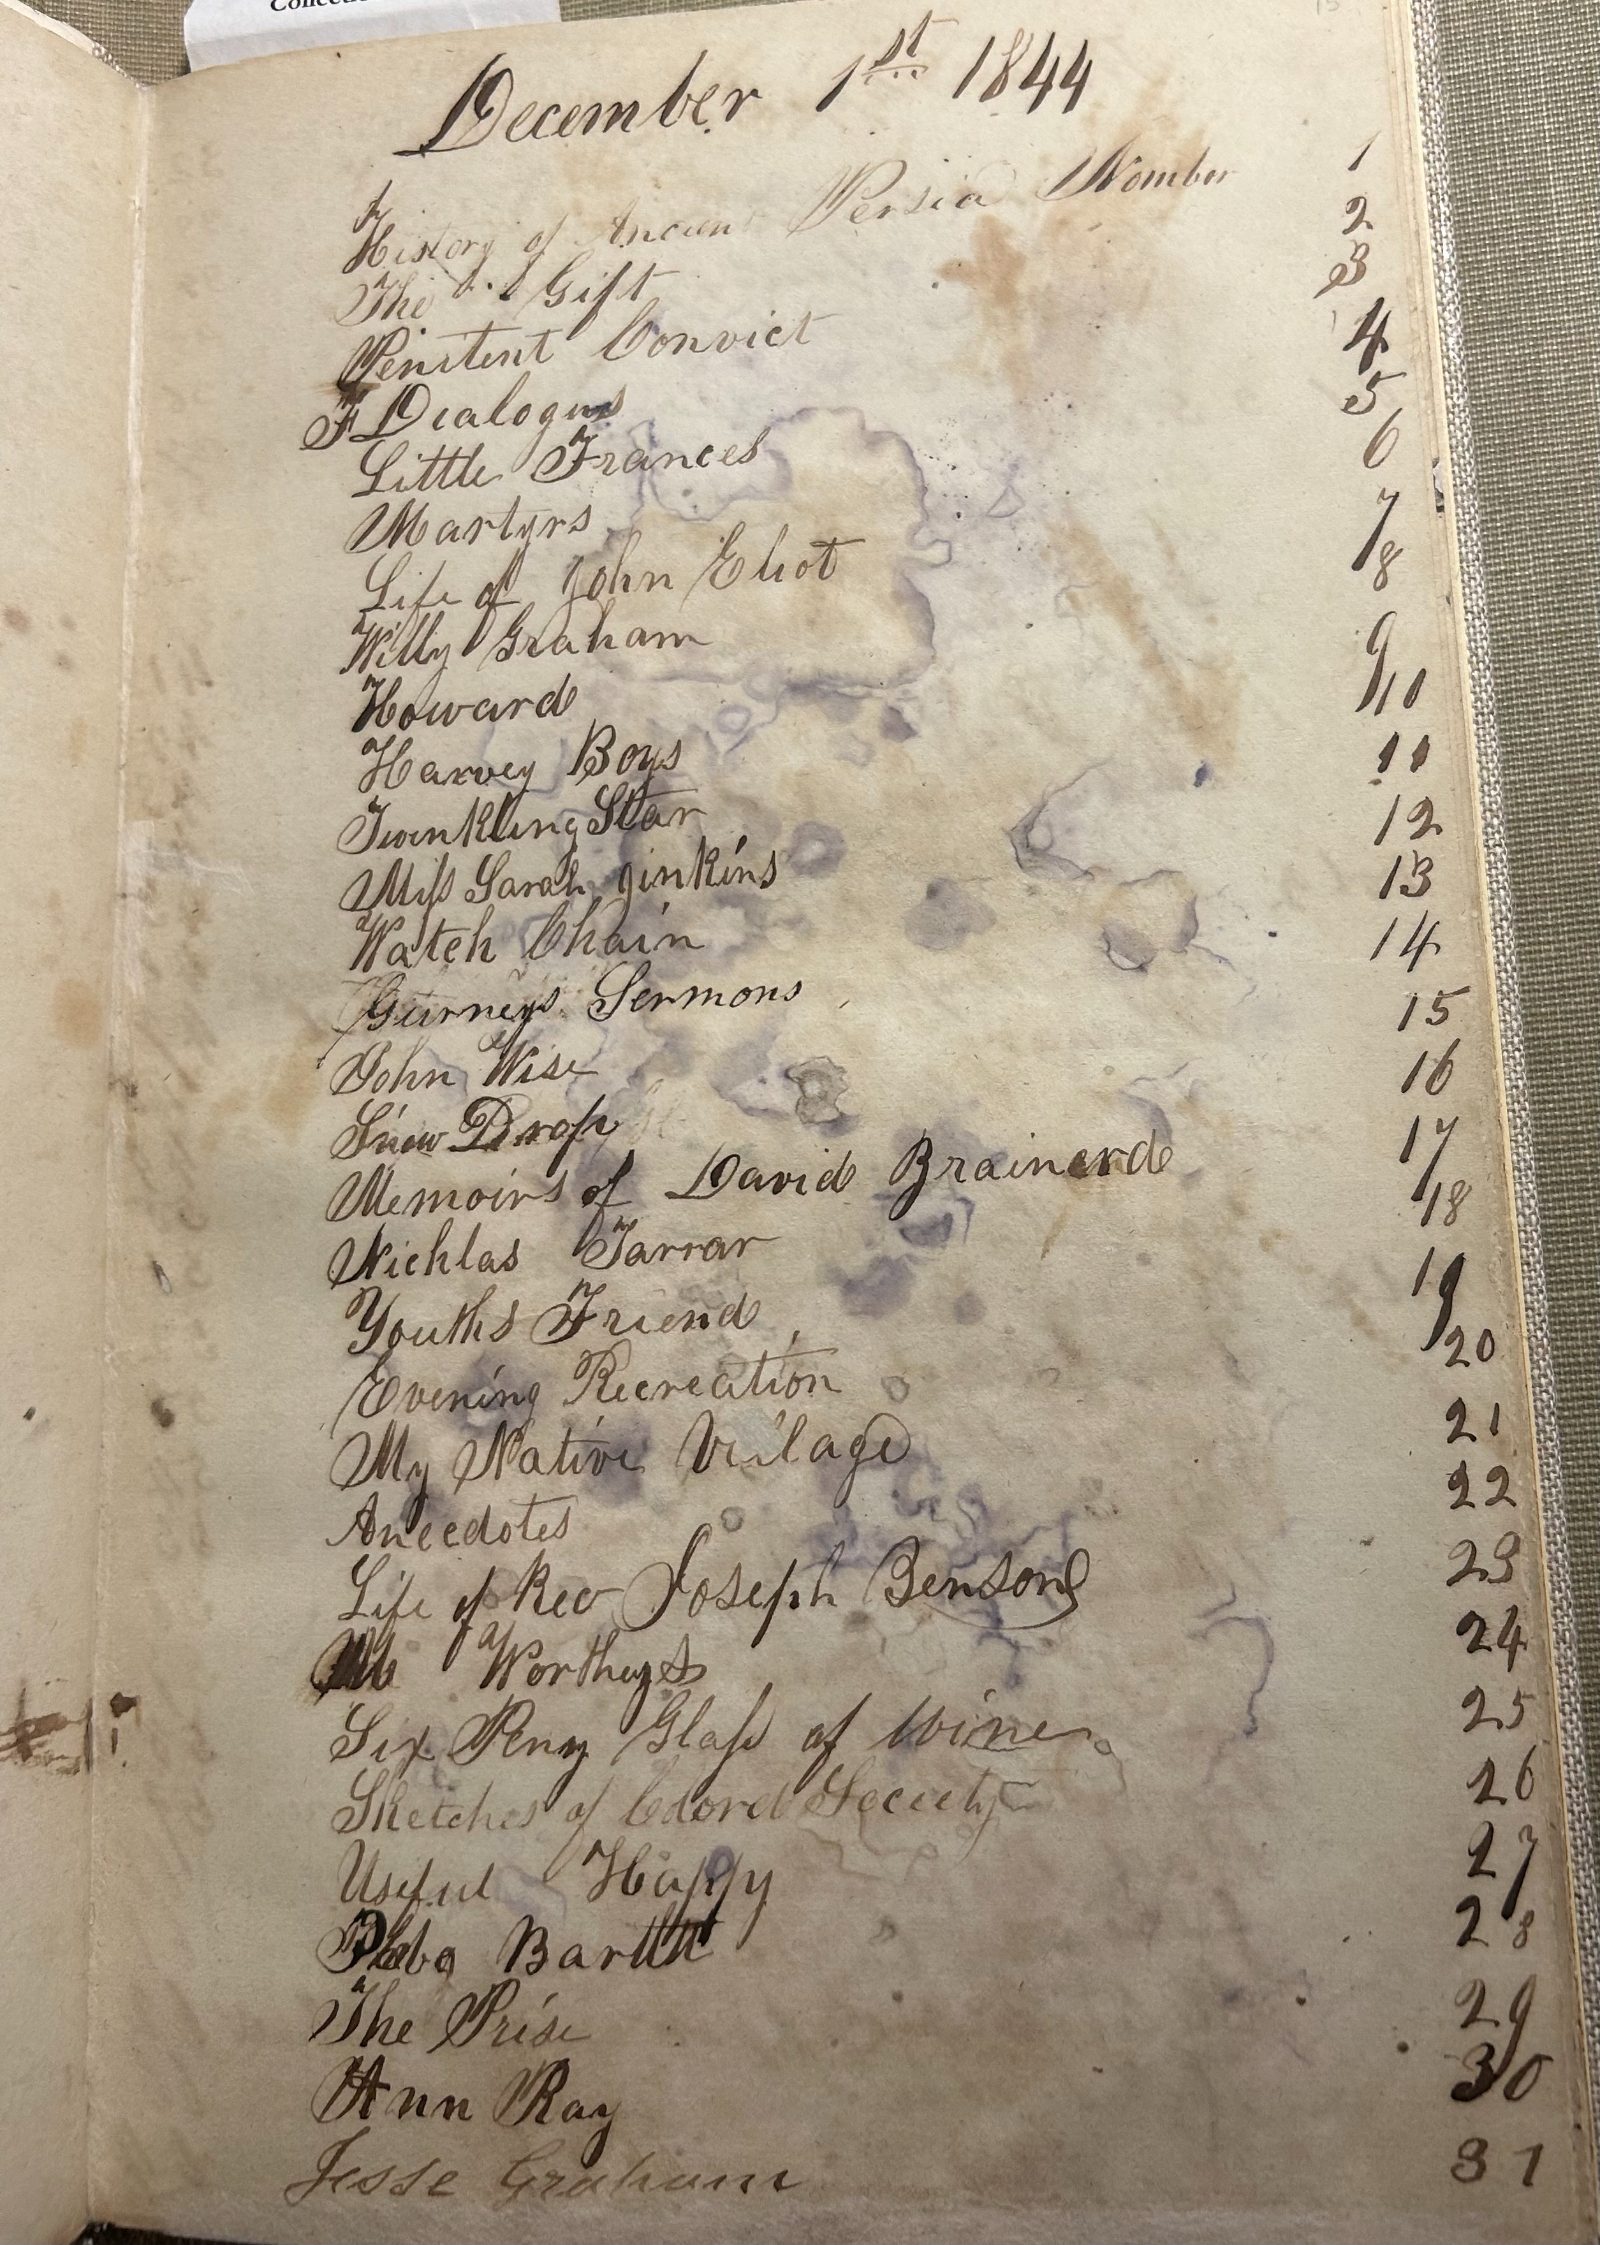 December 1st 1844
History of Ancient Persia Nomber 1
The Gift 2
Penitent Convict 3
F Dialogues 4
Little Frances 5
Martyrs 6
Life of John Eliot 7
Willy Graham 8
Howard 9
Harvey Boys 10
Twinkling Star 11
Miss Sarah Jinkins 12
Watch Chain 13
Gurneys Sermons 14
John Wise 15
Snow Drop 16
Memoirs of David Brainerd 17
Nichlas Farrar 18
Youths Friend 19
Evening Recreation 20
My Native Vilage 21
Anecdotes 22
Life of Rev Joseph Benson 23
Mr Wortheys 24
Six Peny Glass of Wine 25
Sketches of Society 26
Useful Happy 27
Phebe Bartlett 28
The Prise 29
Ann Ray 30
Jesse Graham 31